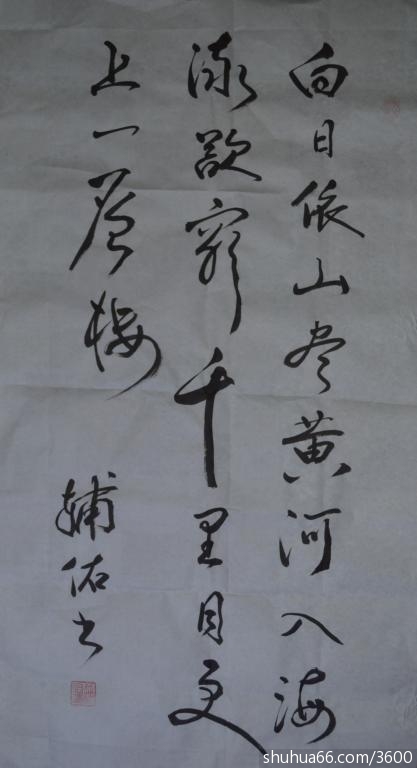 白日依山尽黄河入海
流欲穷千里目更
上一层楼
辅佑书
shuhua66.com/3600